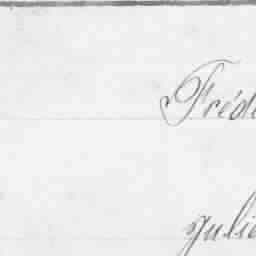 Fréde
Julie